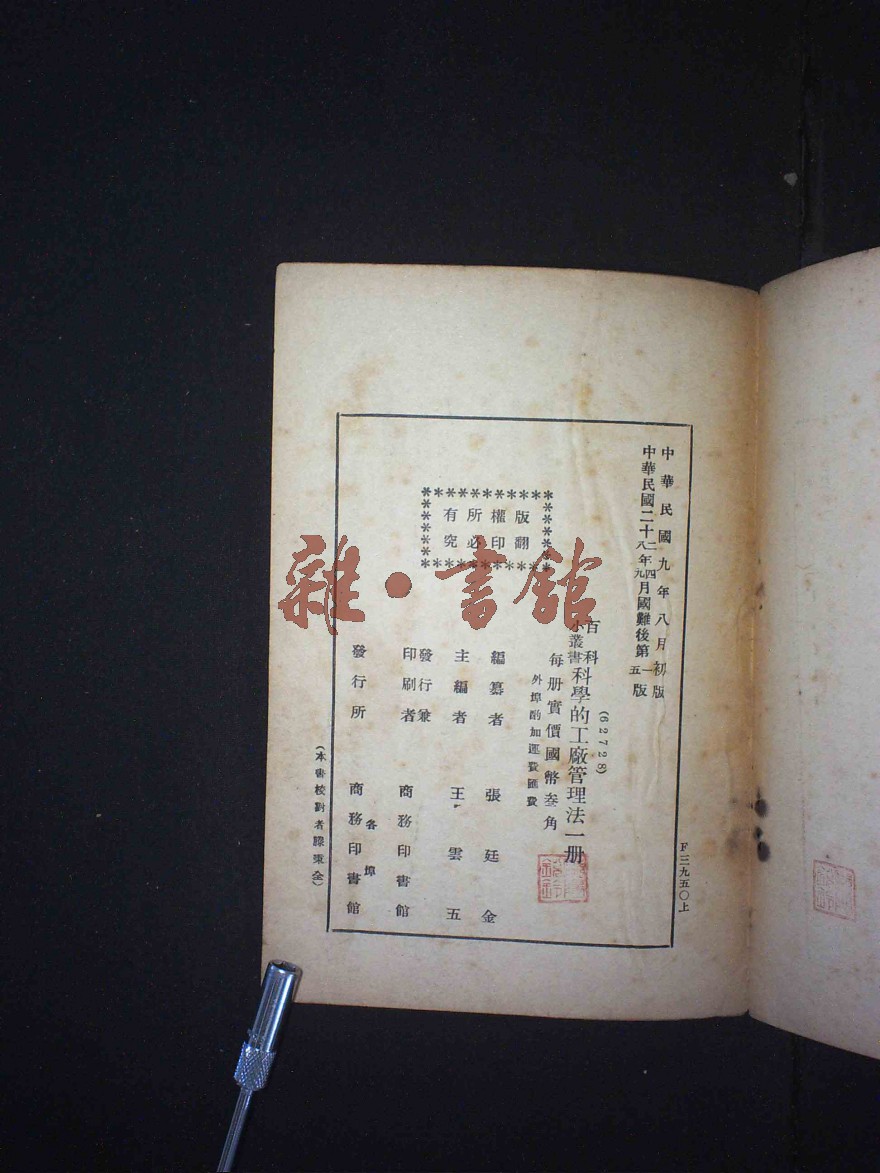 中華民國九年八月初版
中華民國二十二年四月國難後第一版
八年九月 五
版權所有
翻印必究
(62728)
百科小叢書 科學的工廠管理法一册
每册實價國幣叁角
外埠酌加運費匯費
編纂者 張廷金
主編者 王雲五
發行兼印刷者 商務印書館
發行所 各埠 商務印書館
(本書校對者東全)
F三九五〇上
雜·書館